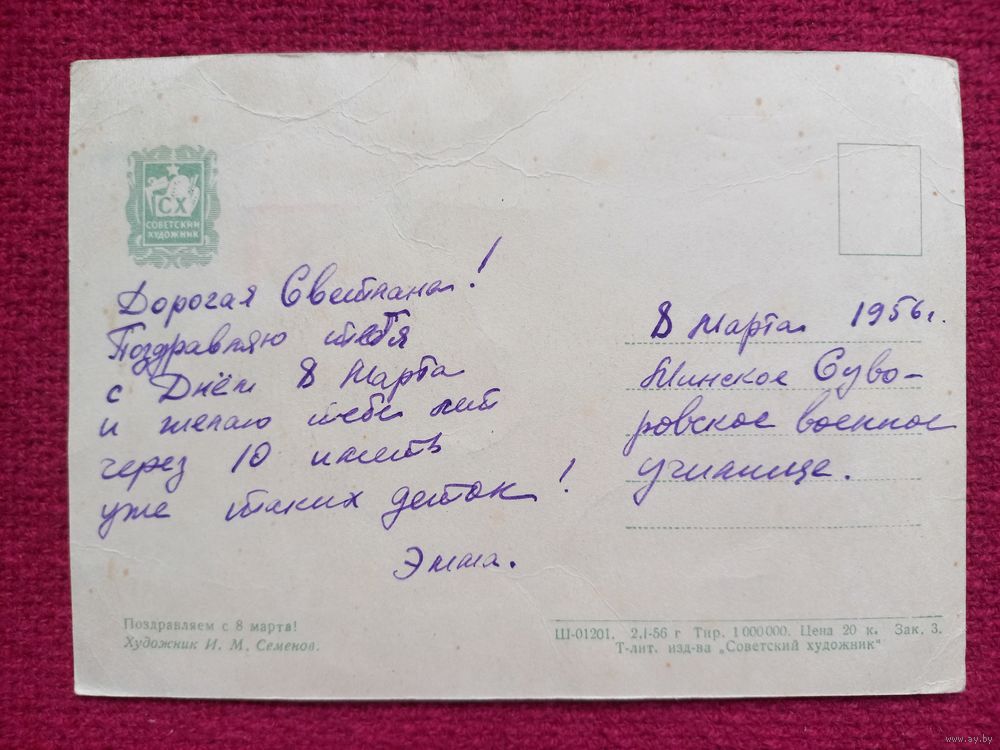 СХ
СОВЕТСКИЙ
ХУДОЖНИК
Дорогая Светлана!
Поздравляю тебя
с Днём 8 Марта
и желаю тебе лет
через 10 иметь
уже таких деток!
Эмма.
8 Марта 1956 г.
Минское Суво-
ровское военное
училище.
Поздравляем с 8 марта!
Художник И. М. Семенов.
Ш-01201. 2.I-56 г Тир. 1 000000. Цена 20 к. Зак. 3.
Т-лит. изд-ва „Советский художник"
www.ay.by